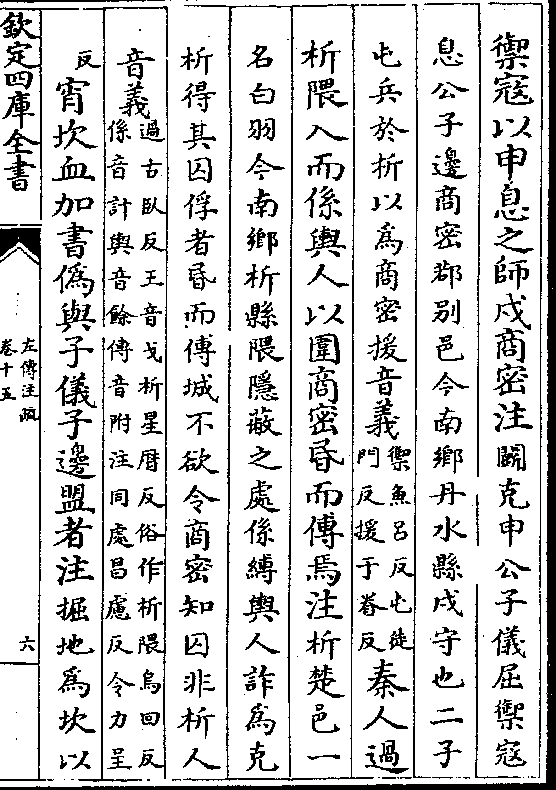 禦寇以申息之師戍商密注鬭克申公子儀屈禦寇
息公子邊商密鄀別邑今南鄉丹水縣戍守也二子
屯兵於析以為商密援音義禦魚呂反屯徒門反援于眷反秦人過
析隈入而係輿人以圍商密昬而傅焉注析楚邑一
名白羽今南鄉析縣隈隱蔽之處係縛輿人詐為克
析得其囚俘者昬而傅城不欲令商密知囚非析人
音義過古臥反王音戈析星厯反俗作析隈烏回反係音計輿音餘傅音附注同處昌慮反令力呈
反宵坎血加書偽與子儀子邊盟者注掘地為坎以
欽定四庫全書
左傳注疏
卷十五
六